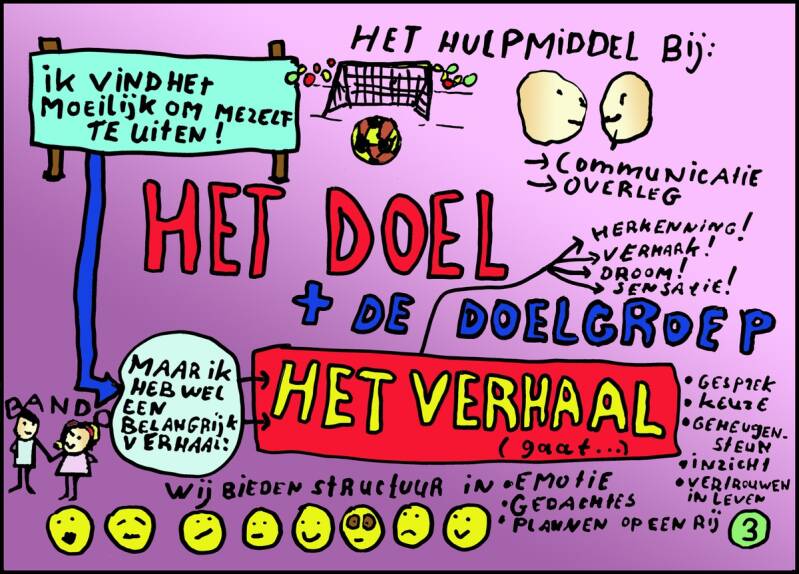 HET HULPMIDDEL BIJ:
iK VIND HET
MOEILIJK OM MEZELF
TE UITEN!
→ COMMUNICATIE
→ OVERLEG
HET DOEL
HERKENNING!
VERMAAK!
DROOM!
SENSATIE!
+ DE DOELGROEP
MAAR iK
HEB WEL
EEN
BELANGRIJK
VERHAAL:
BAND
HET VERHAAL
(gaat...)
• GESPREK
• KEUZE
• GEHEUGEN-
STEUN
• INZICHT
• VERTROUWEN
IN LEVEN
WIJ BIEDEN STRUCTUUR IN • EMOTIE
• GEDACHTES
• PLANNEN OP EEN RIJ
3